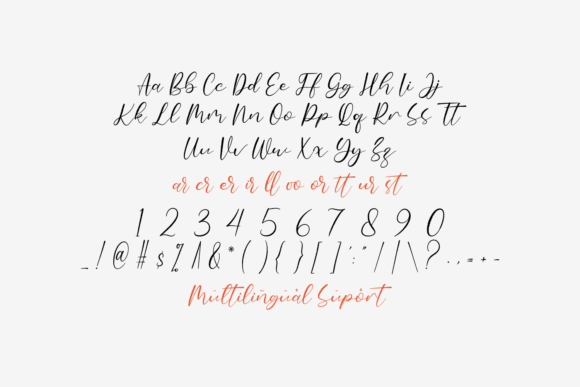 Aa Bb Cc Dd Ee Ff Gg Hh Ii Jj
Kk Ll Mm Nn Oo Pp Qq Rr Ss Tt
Uu Vv Ww Xx Yy Zz
ar cr er ir ll oo or tt ur st
1 2 3 4 5 6 7 8 9 0
_ ! @ # $ % ^ & * ( ) { } [ ] ' : " / | \ ? . , = + -
Mültilingüál Súpórt